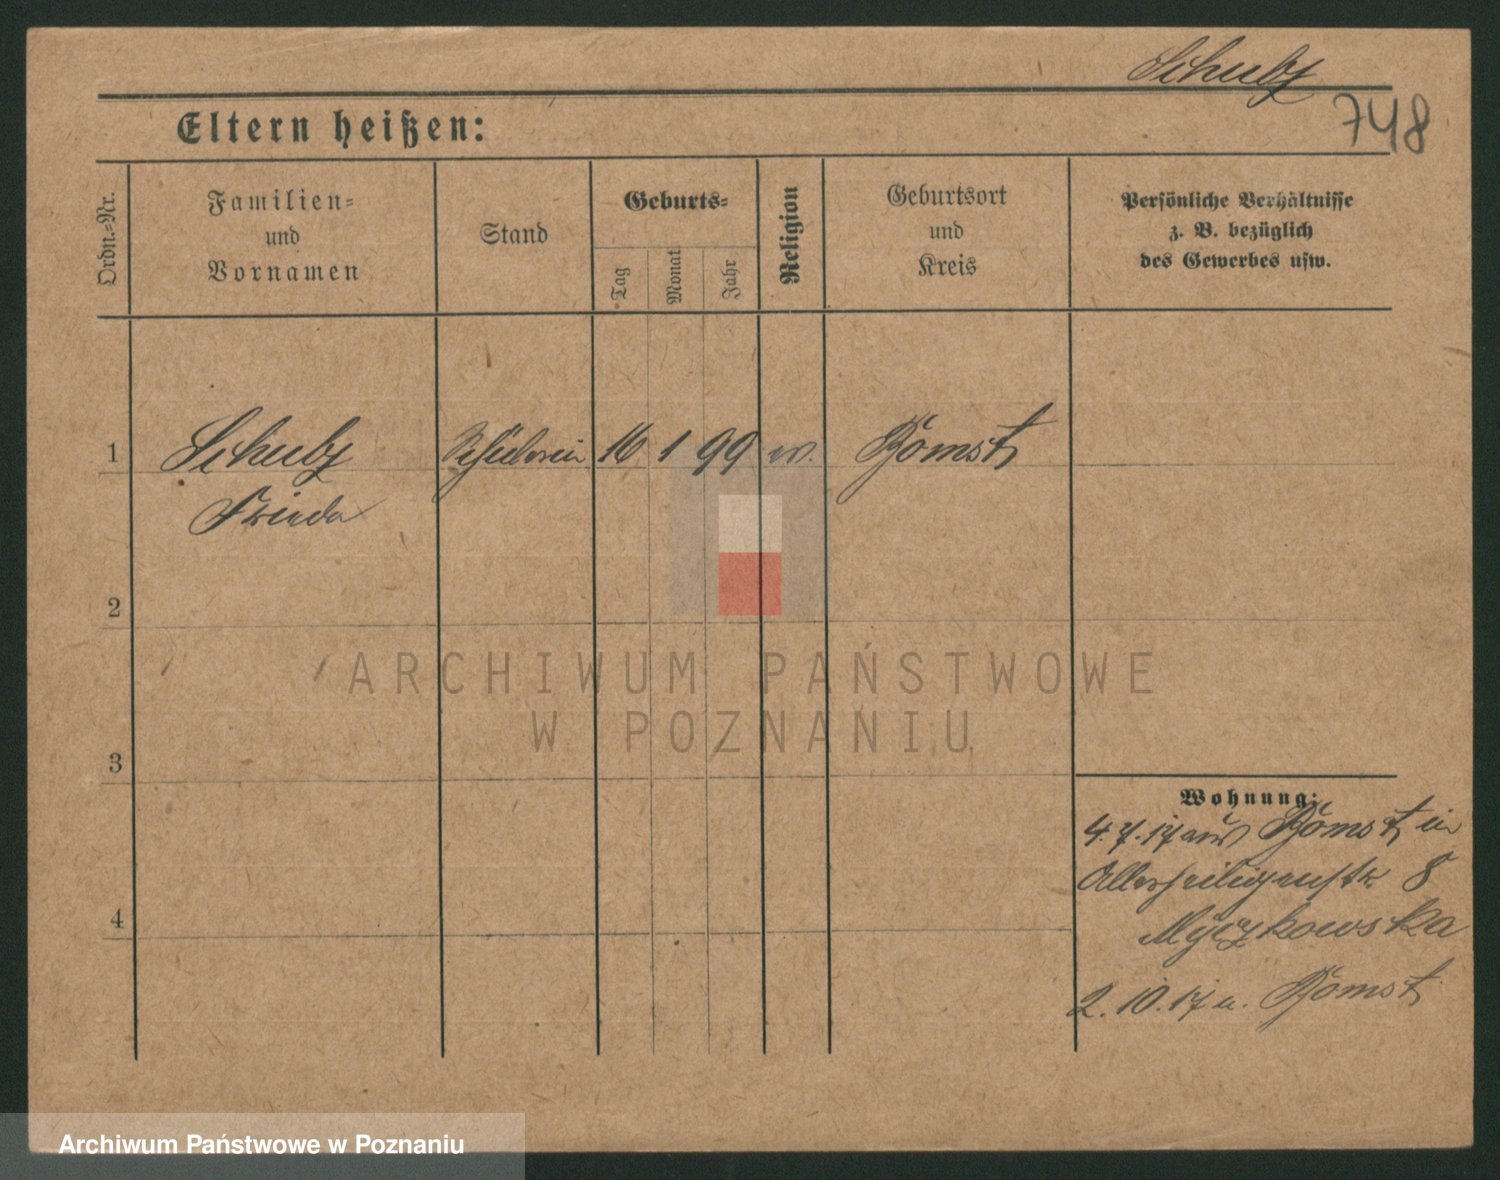 Schulz
748
Eltern heißen:
Ordn.-Nr.
Familien-
und
Vornamen
Stand
Geburts-
Tag
Monat
Jahr
Religion
Geburtsort
und
Kreis
Persönliche Verhältnisse
z. B. bezüglich
des Gewerbes usw.
1
Schulz
Frieda
Schülerin
16
1
99
Bomst
2
ARCHIWUM PAŃSTWOWE
W POZNANIU
3
Wohnung:
4. 7. 17 aus Bomst in
Allerheiligenstr 8
Myczkowska
4
2. 10. 17 n. Bomst
Archiwum Państwowe w Poznaniu